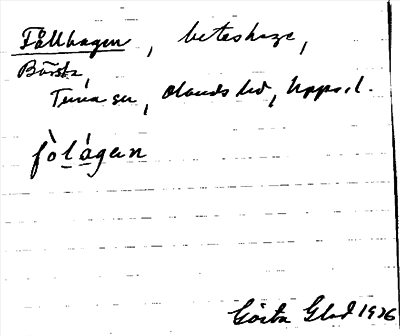 Fållhagen, beteshage,
Börsta,
Tuna sn, Olands hd, Upps. l.
fòlágan
Gösta Glad 1926